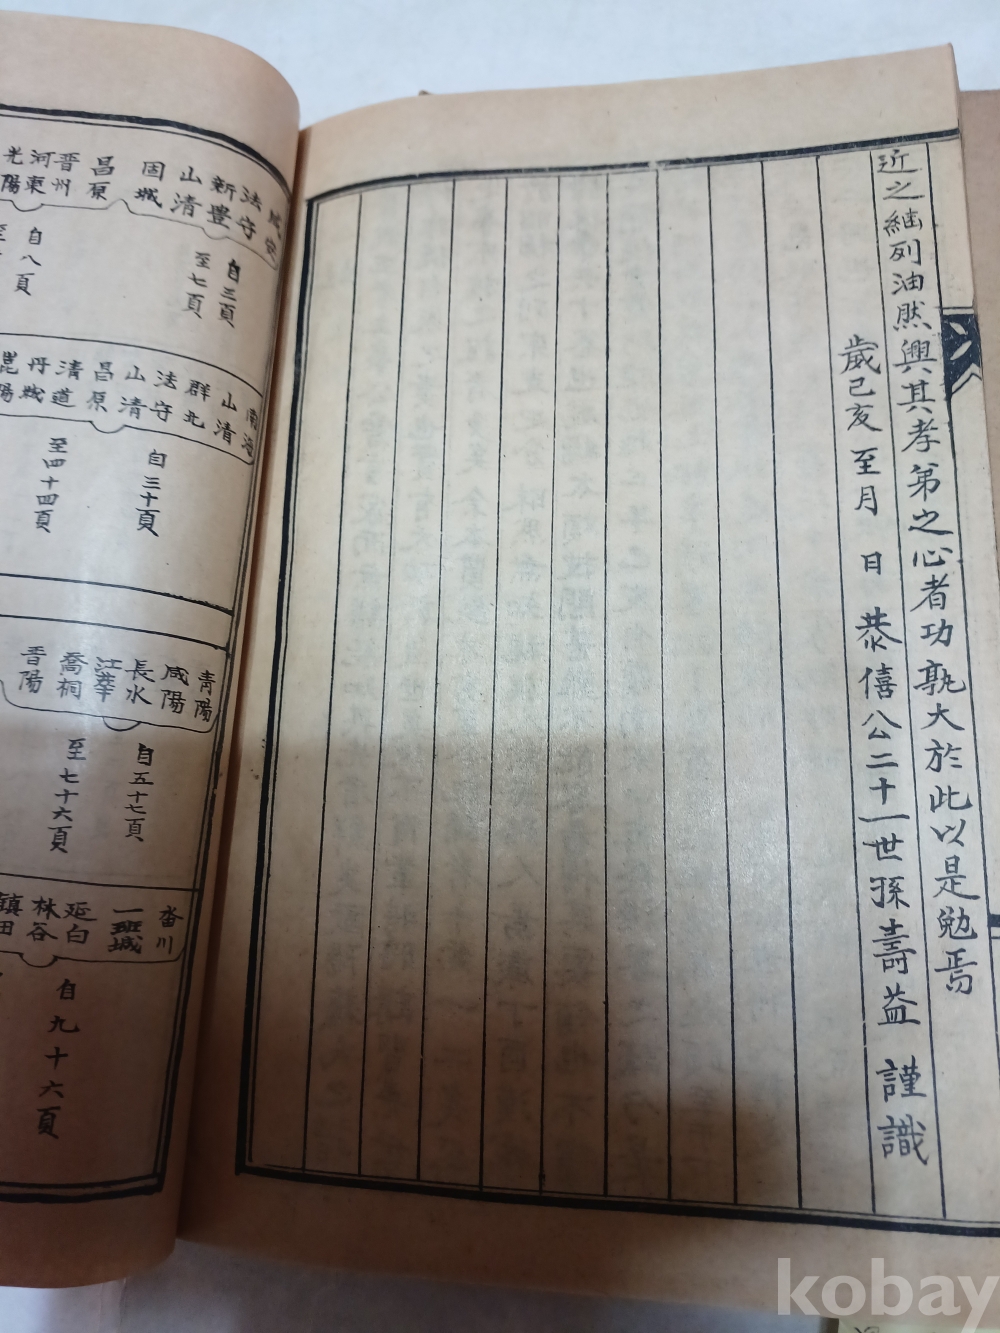 近之継列油然興其孝弟之心者功孰大於此以是勉焉
歲己亥至月 日 恭僖公二十一世孫壽益 謹識
法守
新豊
山清
固城
昌原
晋州
河東
光陽
自三頁
至七頁
自八頁
至
南海
山清
群北
法守
山清
昌原
清道
丹城
昆陽
自三十頁
至四十四頁
青陽
咸陽
長水
江華
喬桐
晋陽
自五十七頁
至七十六頁
沓川
一班城
延白
林谷
鎮田
自九十六頁
kobay